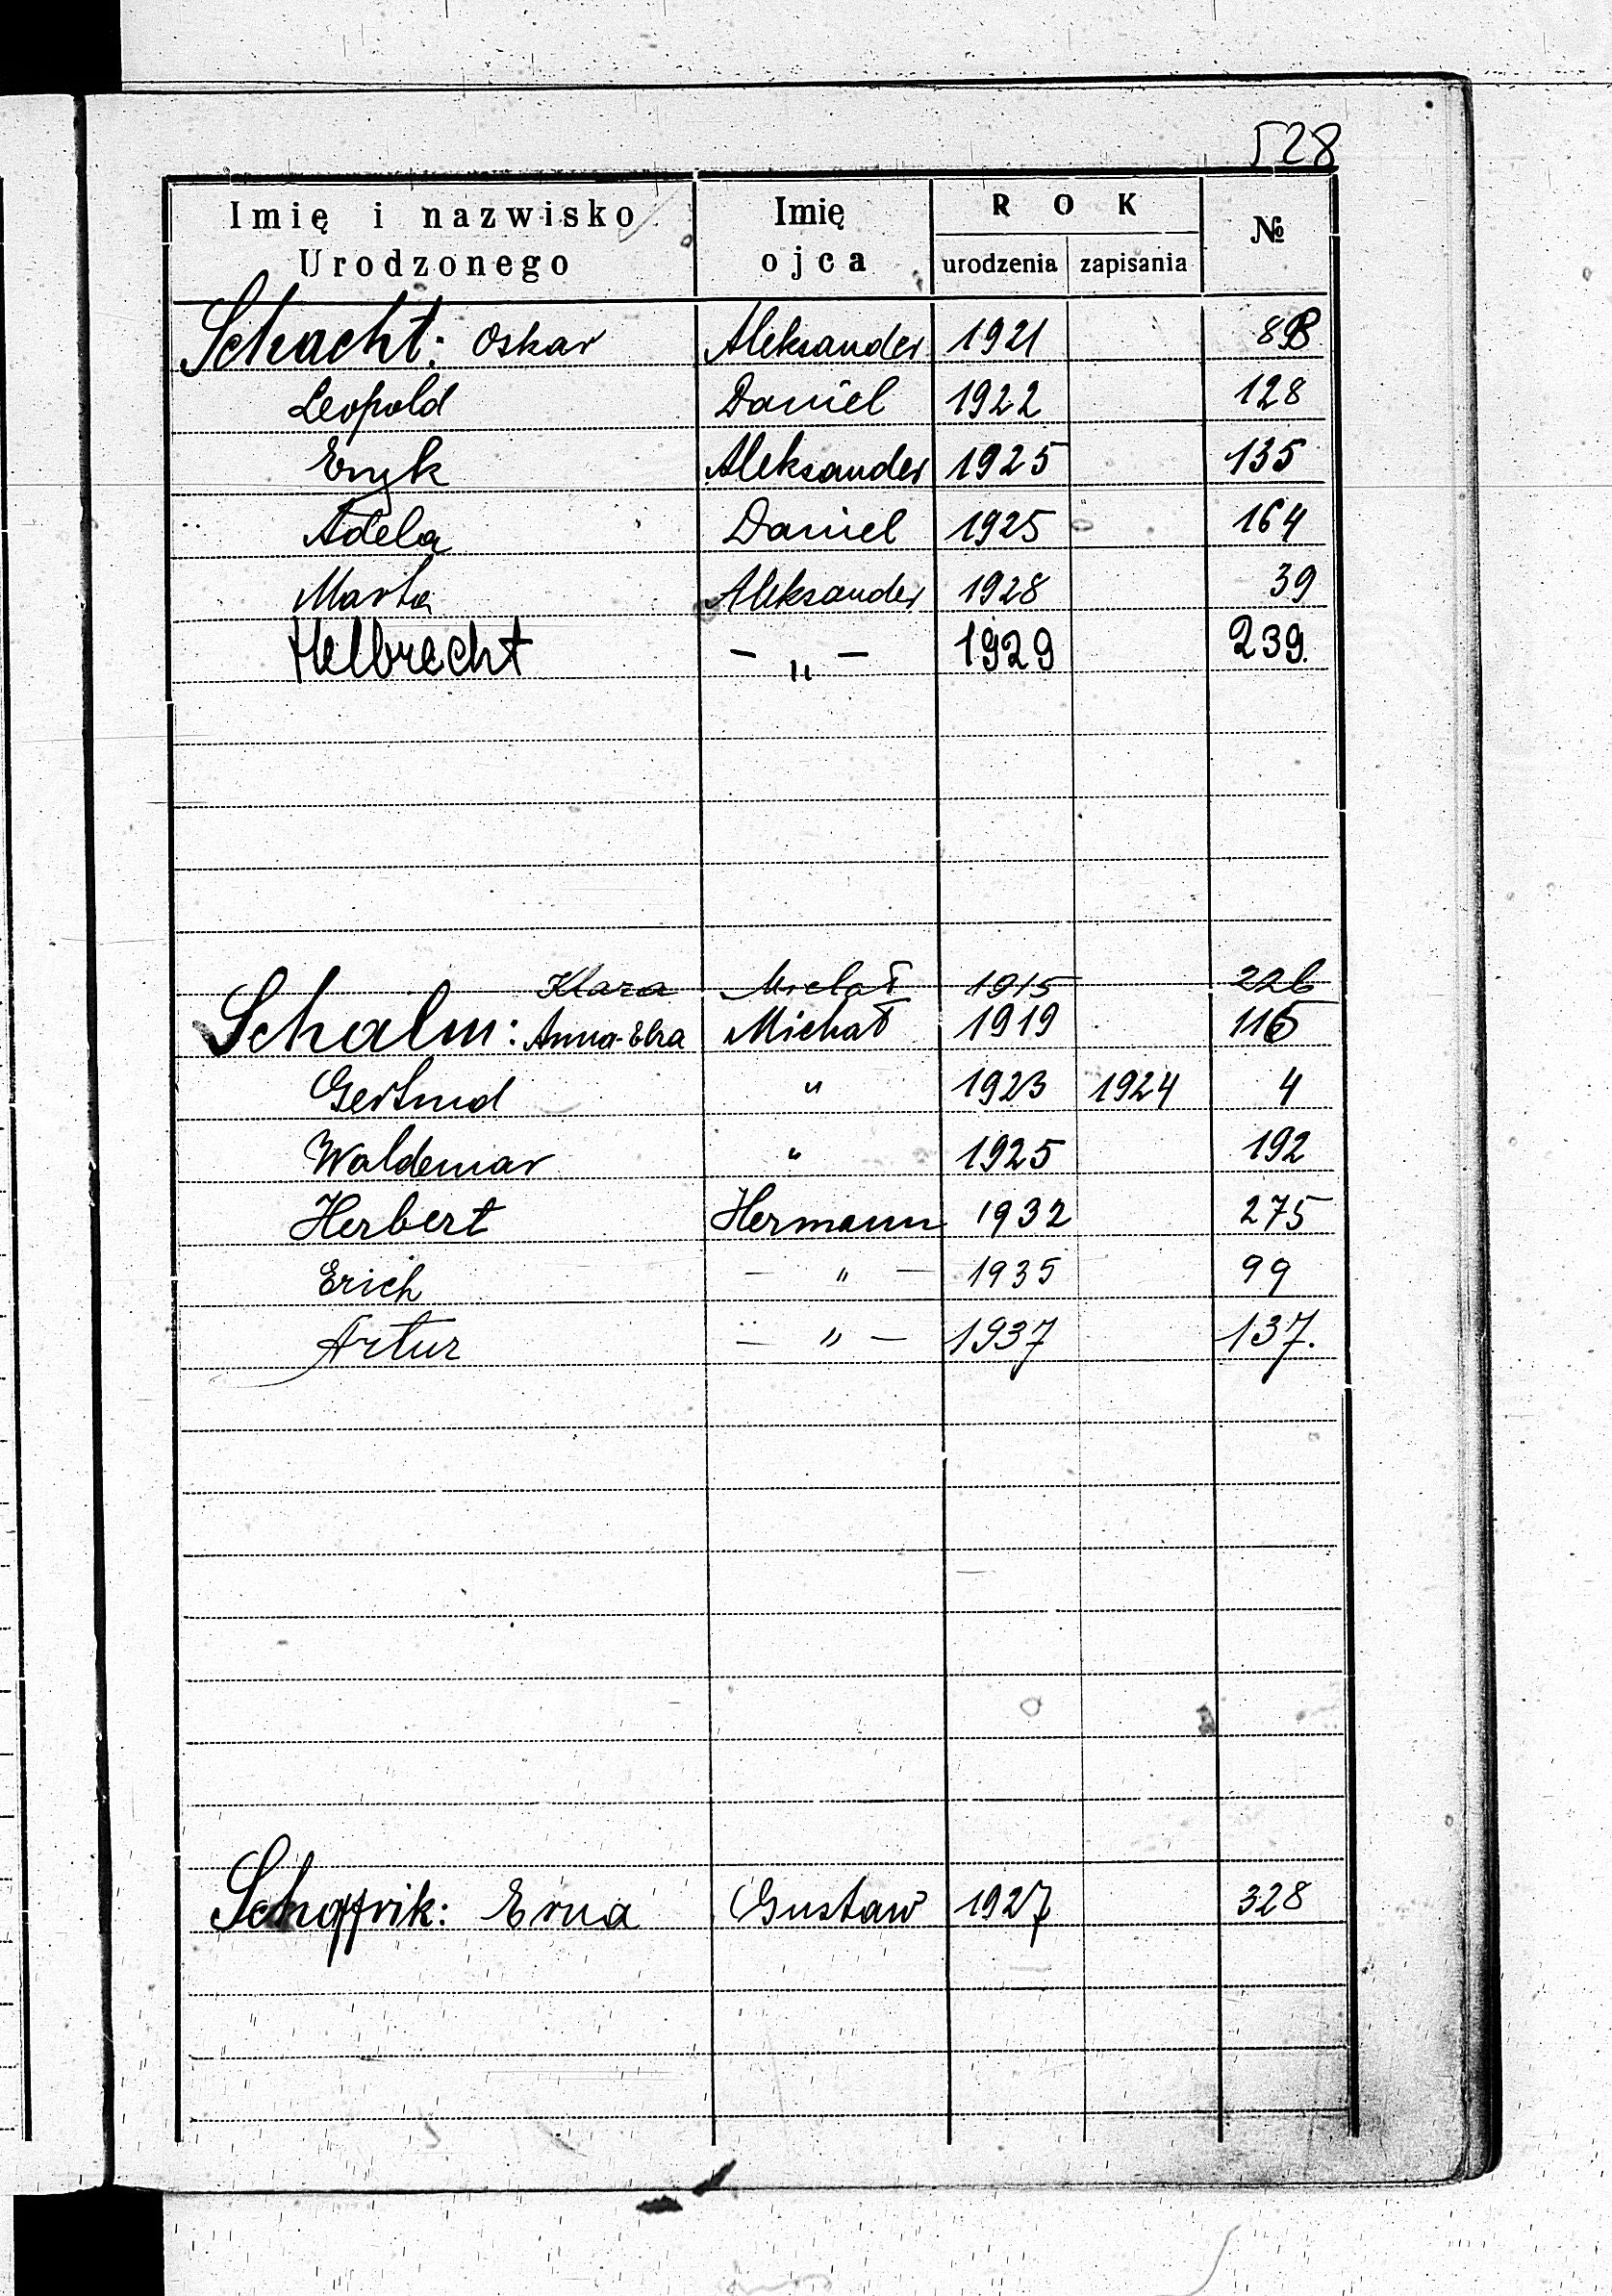 528
Imię i nazwisko Urodzonego Imię ojca ROK urodzenia zapisania №
Schacht: Oskar Aleksander 1921
Leopold Daniel 1922 128
Eryk Aleksander 1925 135
Adela Daniel 1925 164
Marta Aleksander 1928 39
Helbrecht – „ – 1929 239.
Klara Michał 1915 226
Schalm: Anna-Elza Michał 1919 116
Gertrud " 1923 1924 4
Waldemar " 1925 192
Herbert Hermann 1932 275
Erich – „ – 1935 99
Artur – „ – 1937 137.
Erna Gustaw 1927 328